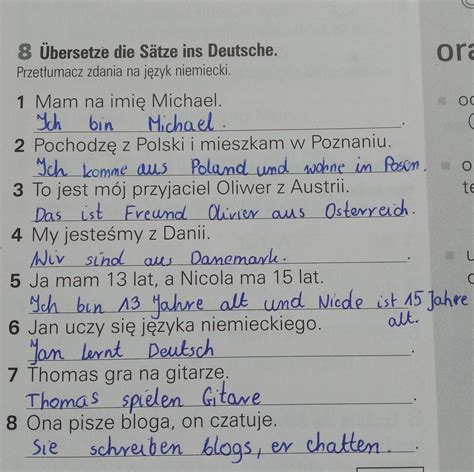 8 Übersetze die Sätze ins Deutsche.
Przetłumacz zdania na język niemiecki.
1 Mam na imię Michael.
Ich bin Michael.
2 Pochodzę z Polski i mieszkam w Poznaniu.
Ich komme aus Poland und wohne in Posen.
3 To jest mój przyjaciel Oliwer z Austrii.
Das ist Freund Olivier aus Osterreich.
4 My jesteśmy z Danii.
Wir sind aus Danemark.
5 Ja mam 13 lat, a Nicola ma 15 lat.
Ich bin 13 Jahre alt und Nicole ist 15 Jahre
alt.
6 Jan uczy się języka niemieckiego.
Jan lernt Deutsch
7 Thomas gra na gitarze.
Thomas spielen Gitare
8 Ona pisze bloga, on czatuje.
Sie schreiben blogs, er chatten.